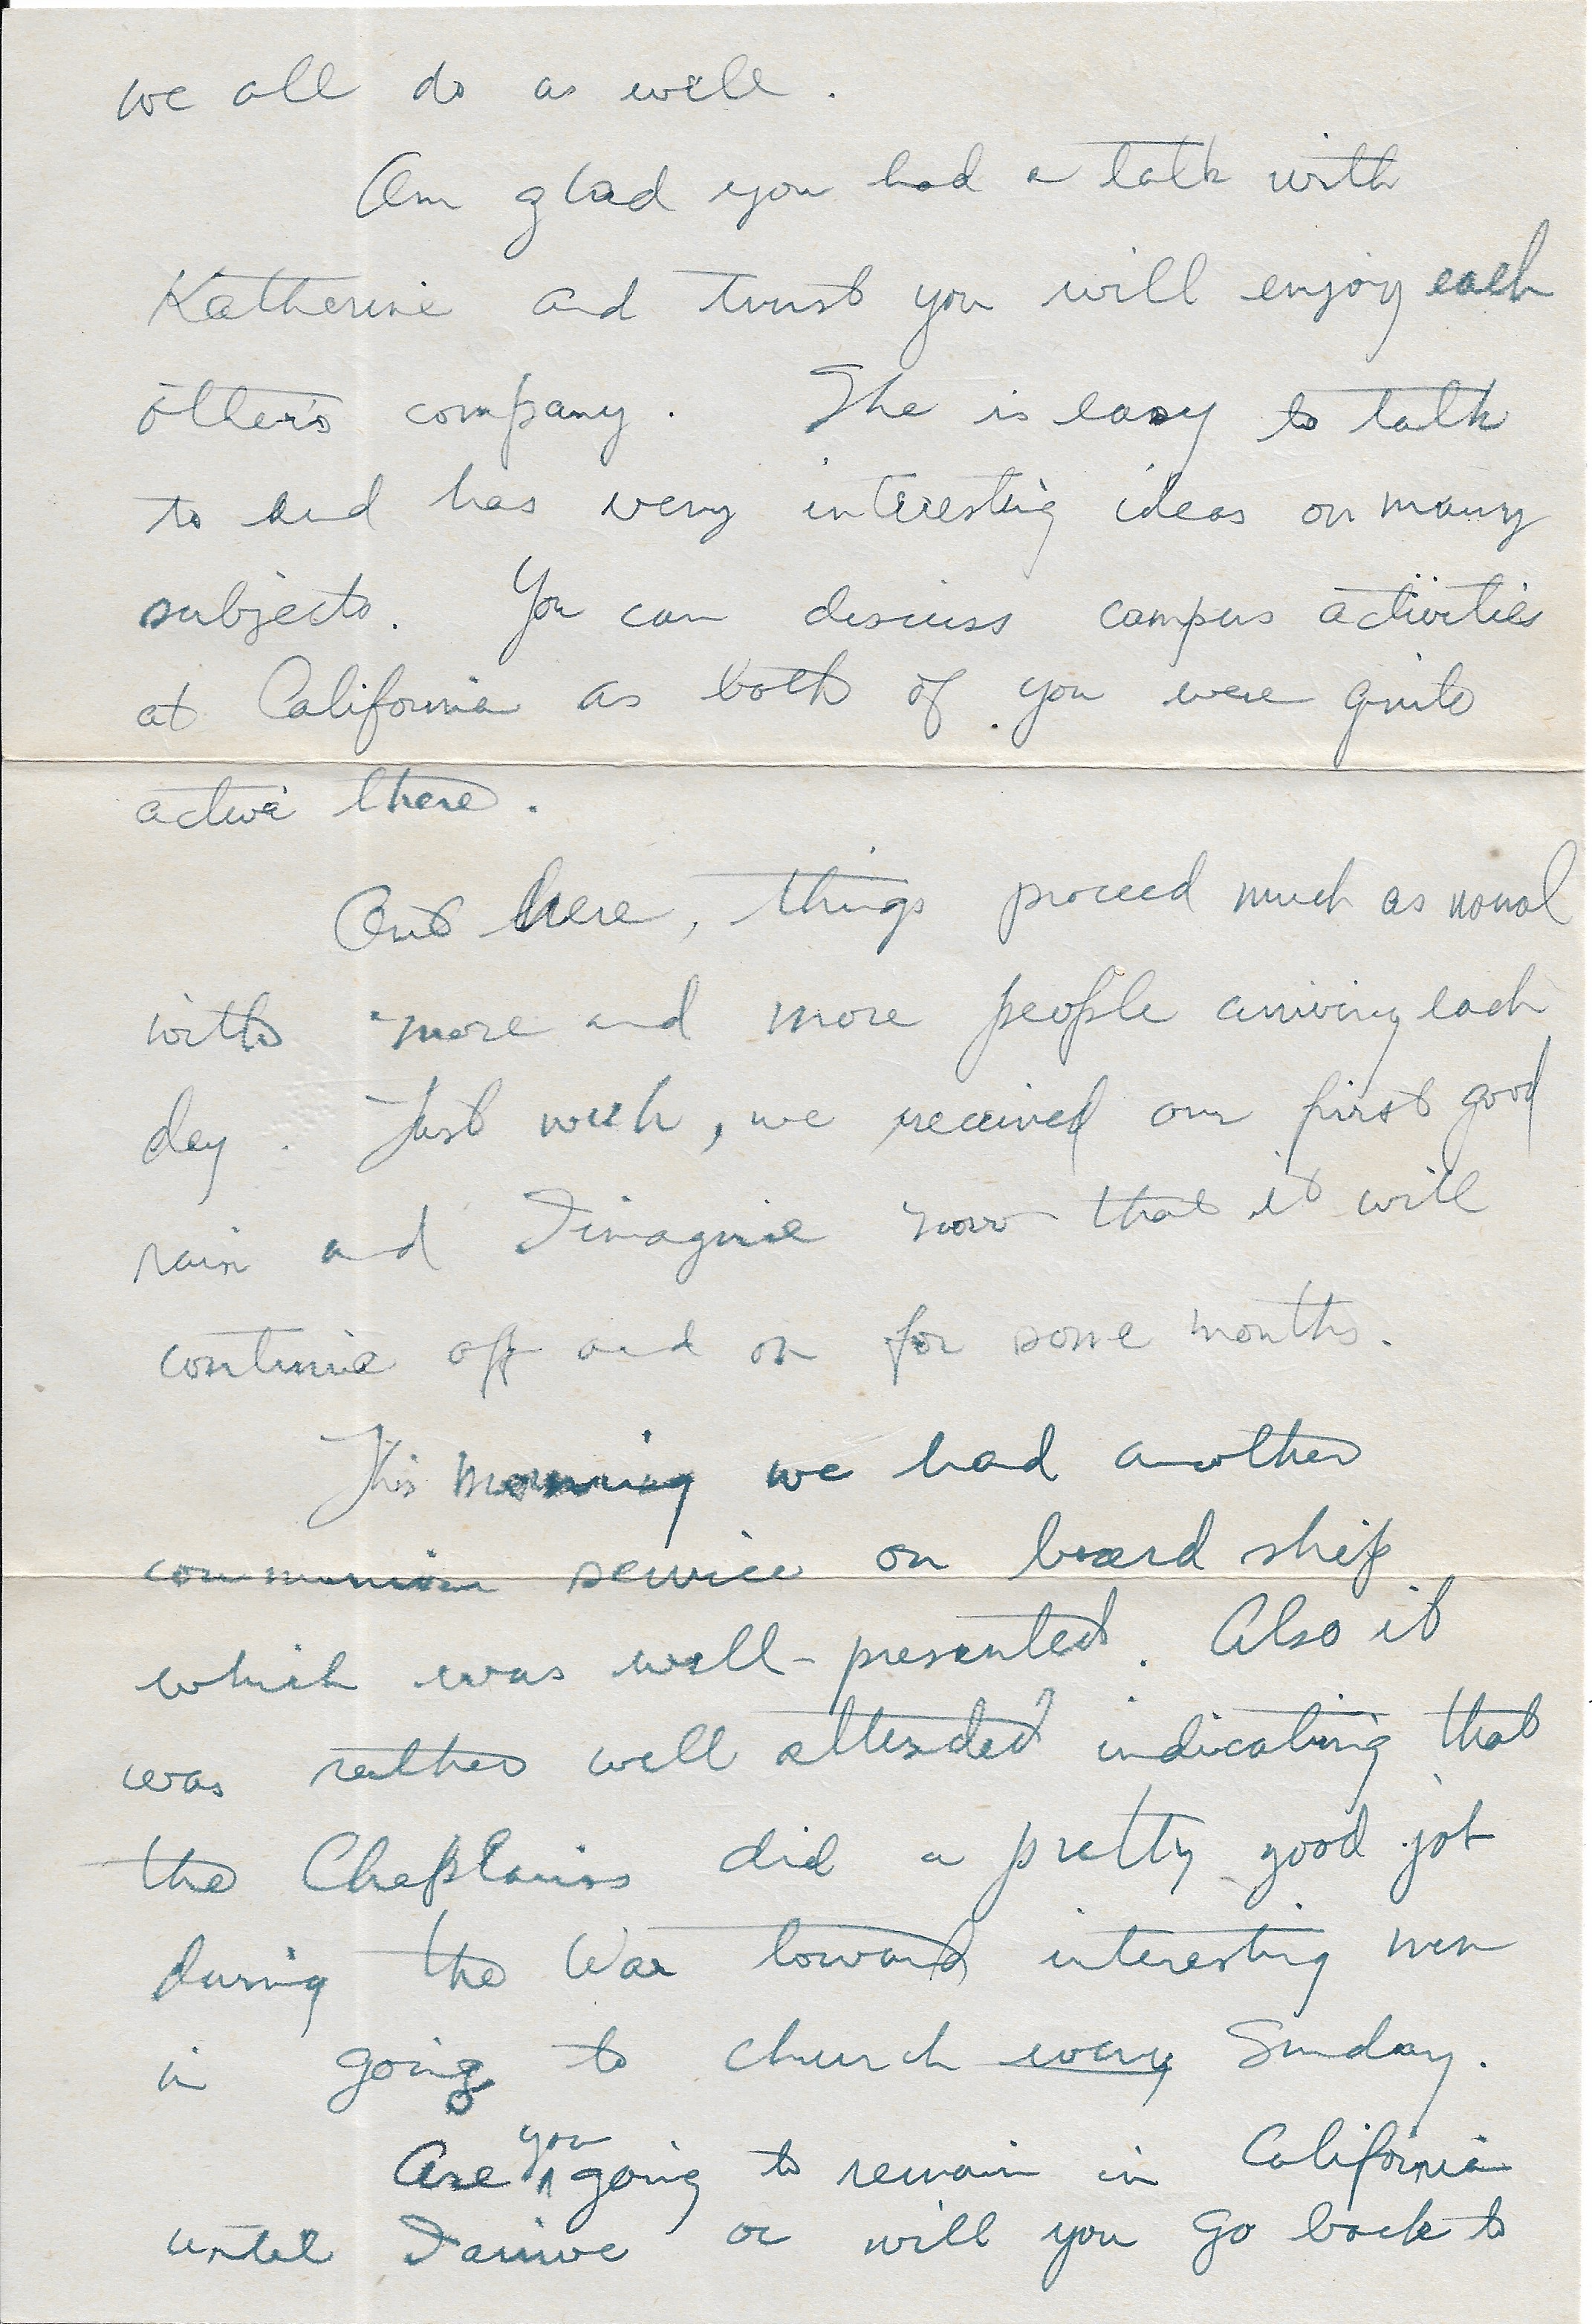 we all do as well.
Am glad you had a talk with
Katherine and trust you will enjoy each
other's company. She is easy to talk
to and has very interesting ideas on many
subjects. You can discuss campus activities
at California as both of you were quite
active there.
Out here, things proceed much as usual
with more and more people arriving each
day. Just week, we received our first good
rain and I imagine now that it will
continue off and on for some months.
This morning we had another
communion service on board ship
which was well-presented. Also it
was rather well attended indicating that
the Chaplains did a pretty good job
during the War toward interesting men
in going to church every Sunday.
Are you going to remain in California
until I arrive or will you go back to